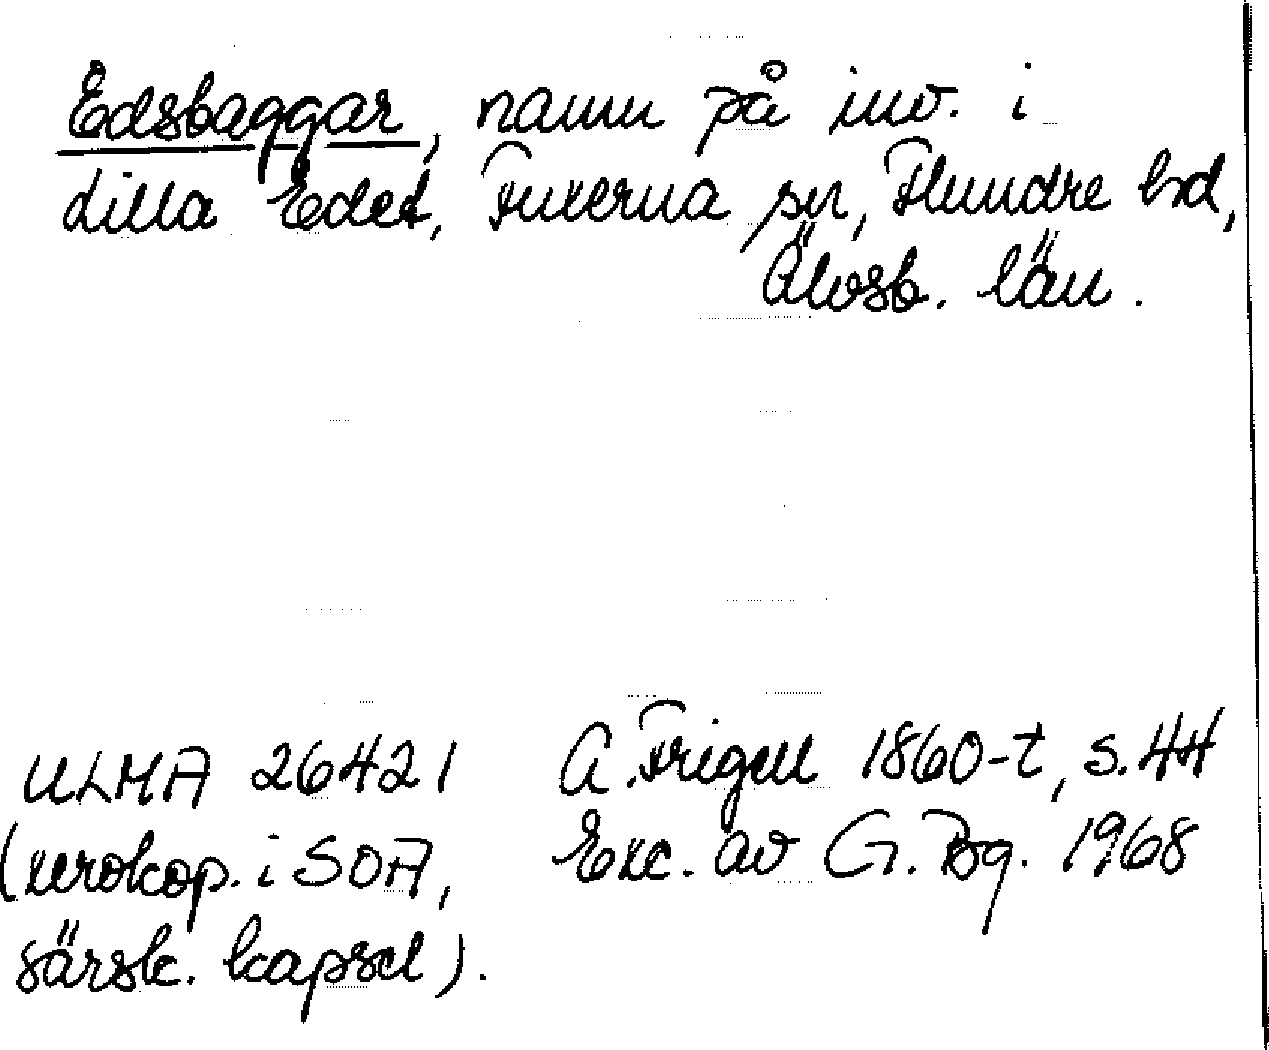 Edsbaggar, namn på inv. i
Lilla Edet, Fuxerna sn, Flundre hd,
Älvsb. län.
ULMA 26421
(xerokop. i SOA,
särsk. kapsel).
A. Frigell 1860-t, s. 44
Exc. av G. Bg. 1968